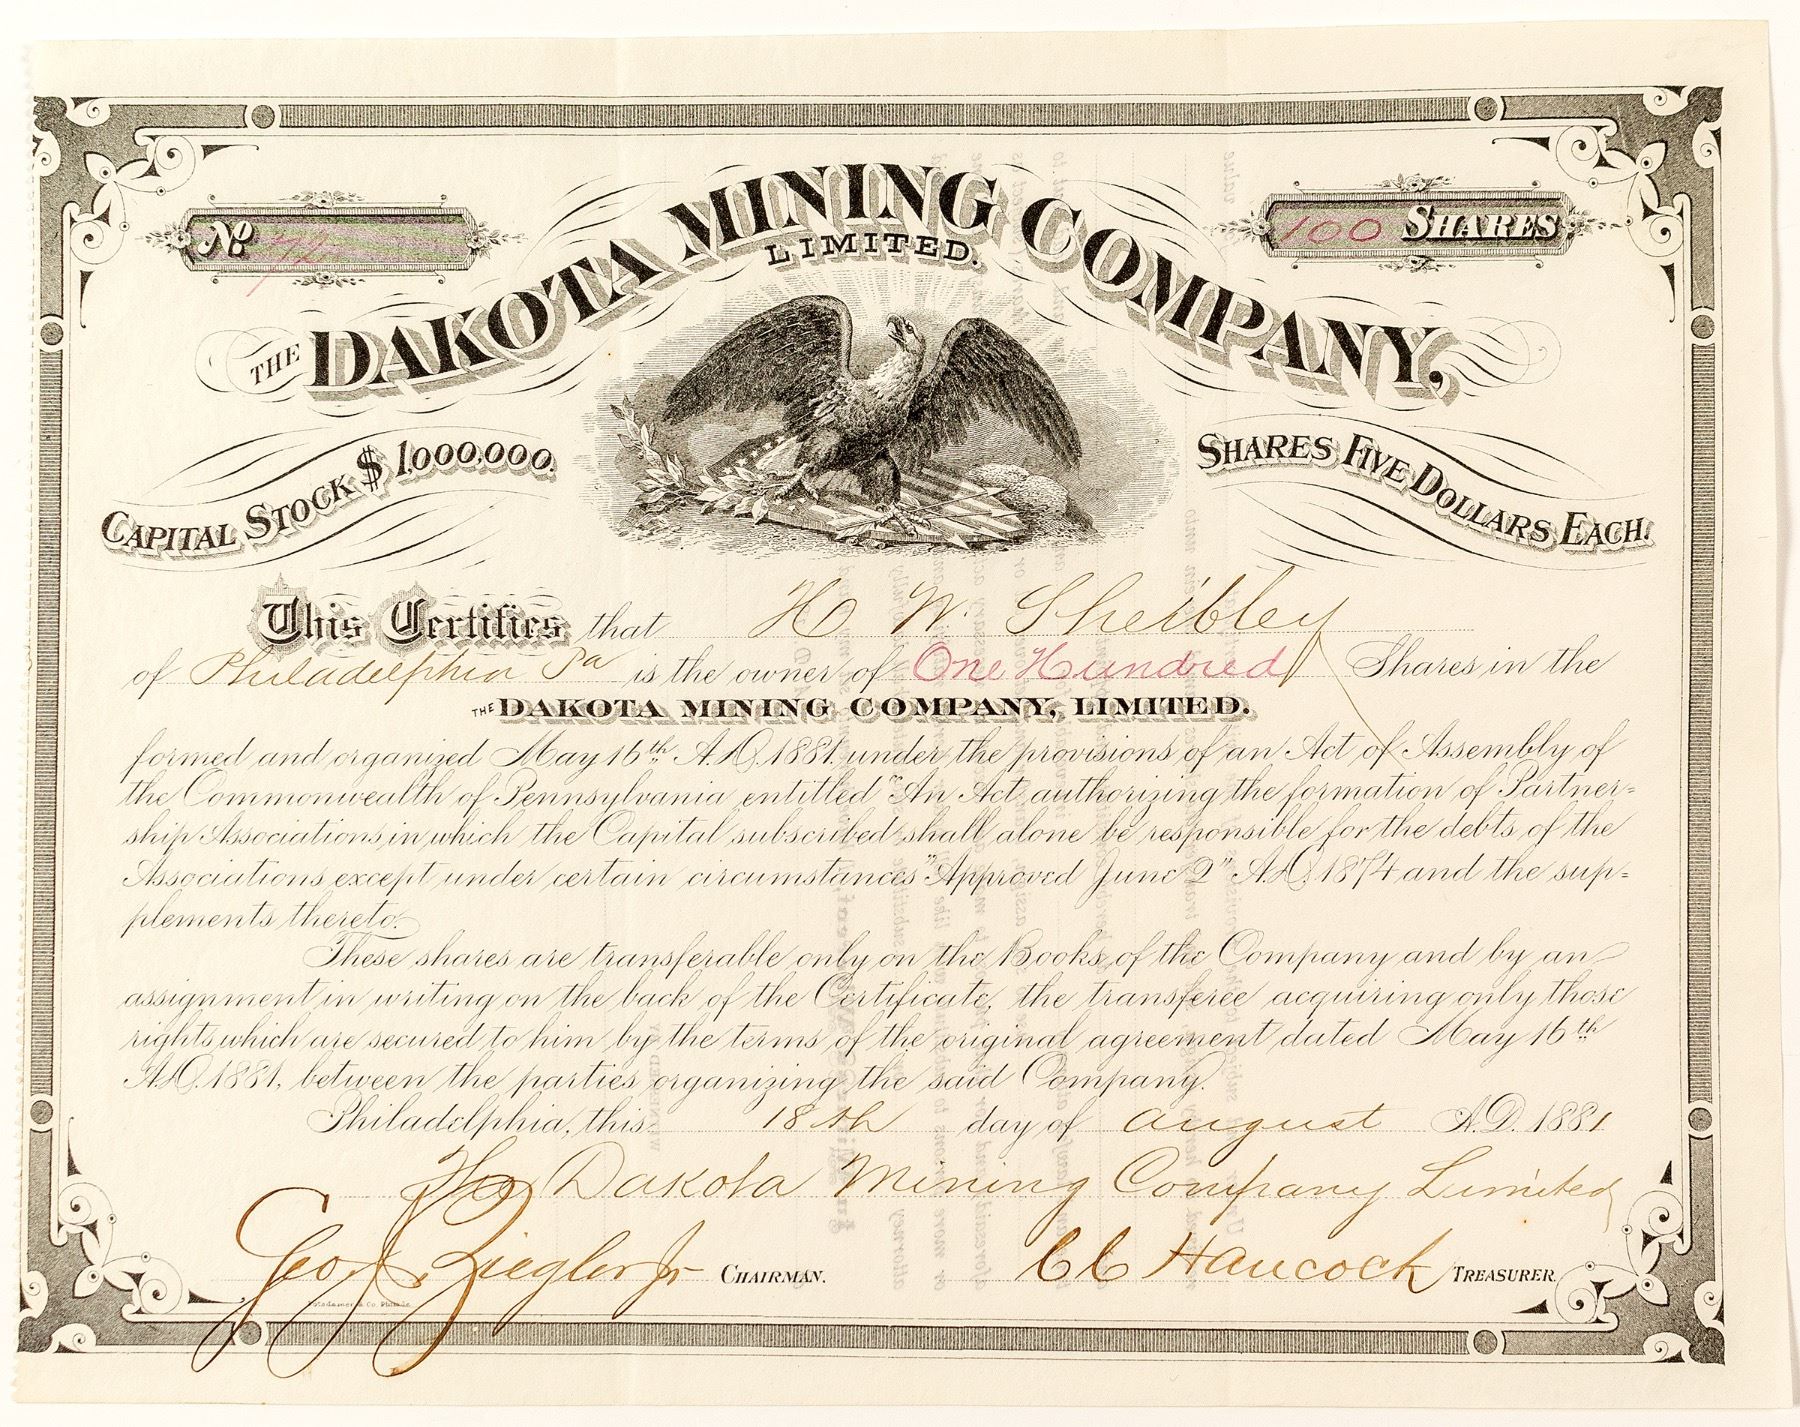 No 72
100 SHARES
THE DAKOTA MINING COMPANY,
LIMITED.
CAPITAL STOCK $ 1,000,000.
SHARES FIVE DOLLARS EACH.
This Certifies that H W. Sheibley
of Philadelphia Pa is the owner of One Hundred Shares in the
THE DAKOTA MINING COMPANY, LIMITED.
formed and organized May 16th A.D. 1881, under the provisions of an Act of Assembly of
the Commonwealth of Pennsylvania entitled "An Act authorizing the formation of Partner=
ship Associations in which the Capital subscribed shall alone be responsible for the debts of the
Associations except under certain circumstances" Approved June 2" A.D. 1874 and the sup=
plements thereto.
These shares are transferable only on the Books of the Company and by an
assignment in writing on the back of the Certificate, the transferee acquiring only those
rights which are secured to him by the terms of the original agreement dated May 16th
A.D. 1881, between the parties organizing the said Company.
Philadelphia, this 18th day of August A.D. 1881
The Dakota Mining Company Limited
Geo J. Ziegler Jr CHAIRMAN.
CC Hancock TREASURER
& Co. Philada.